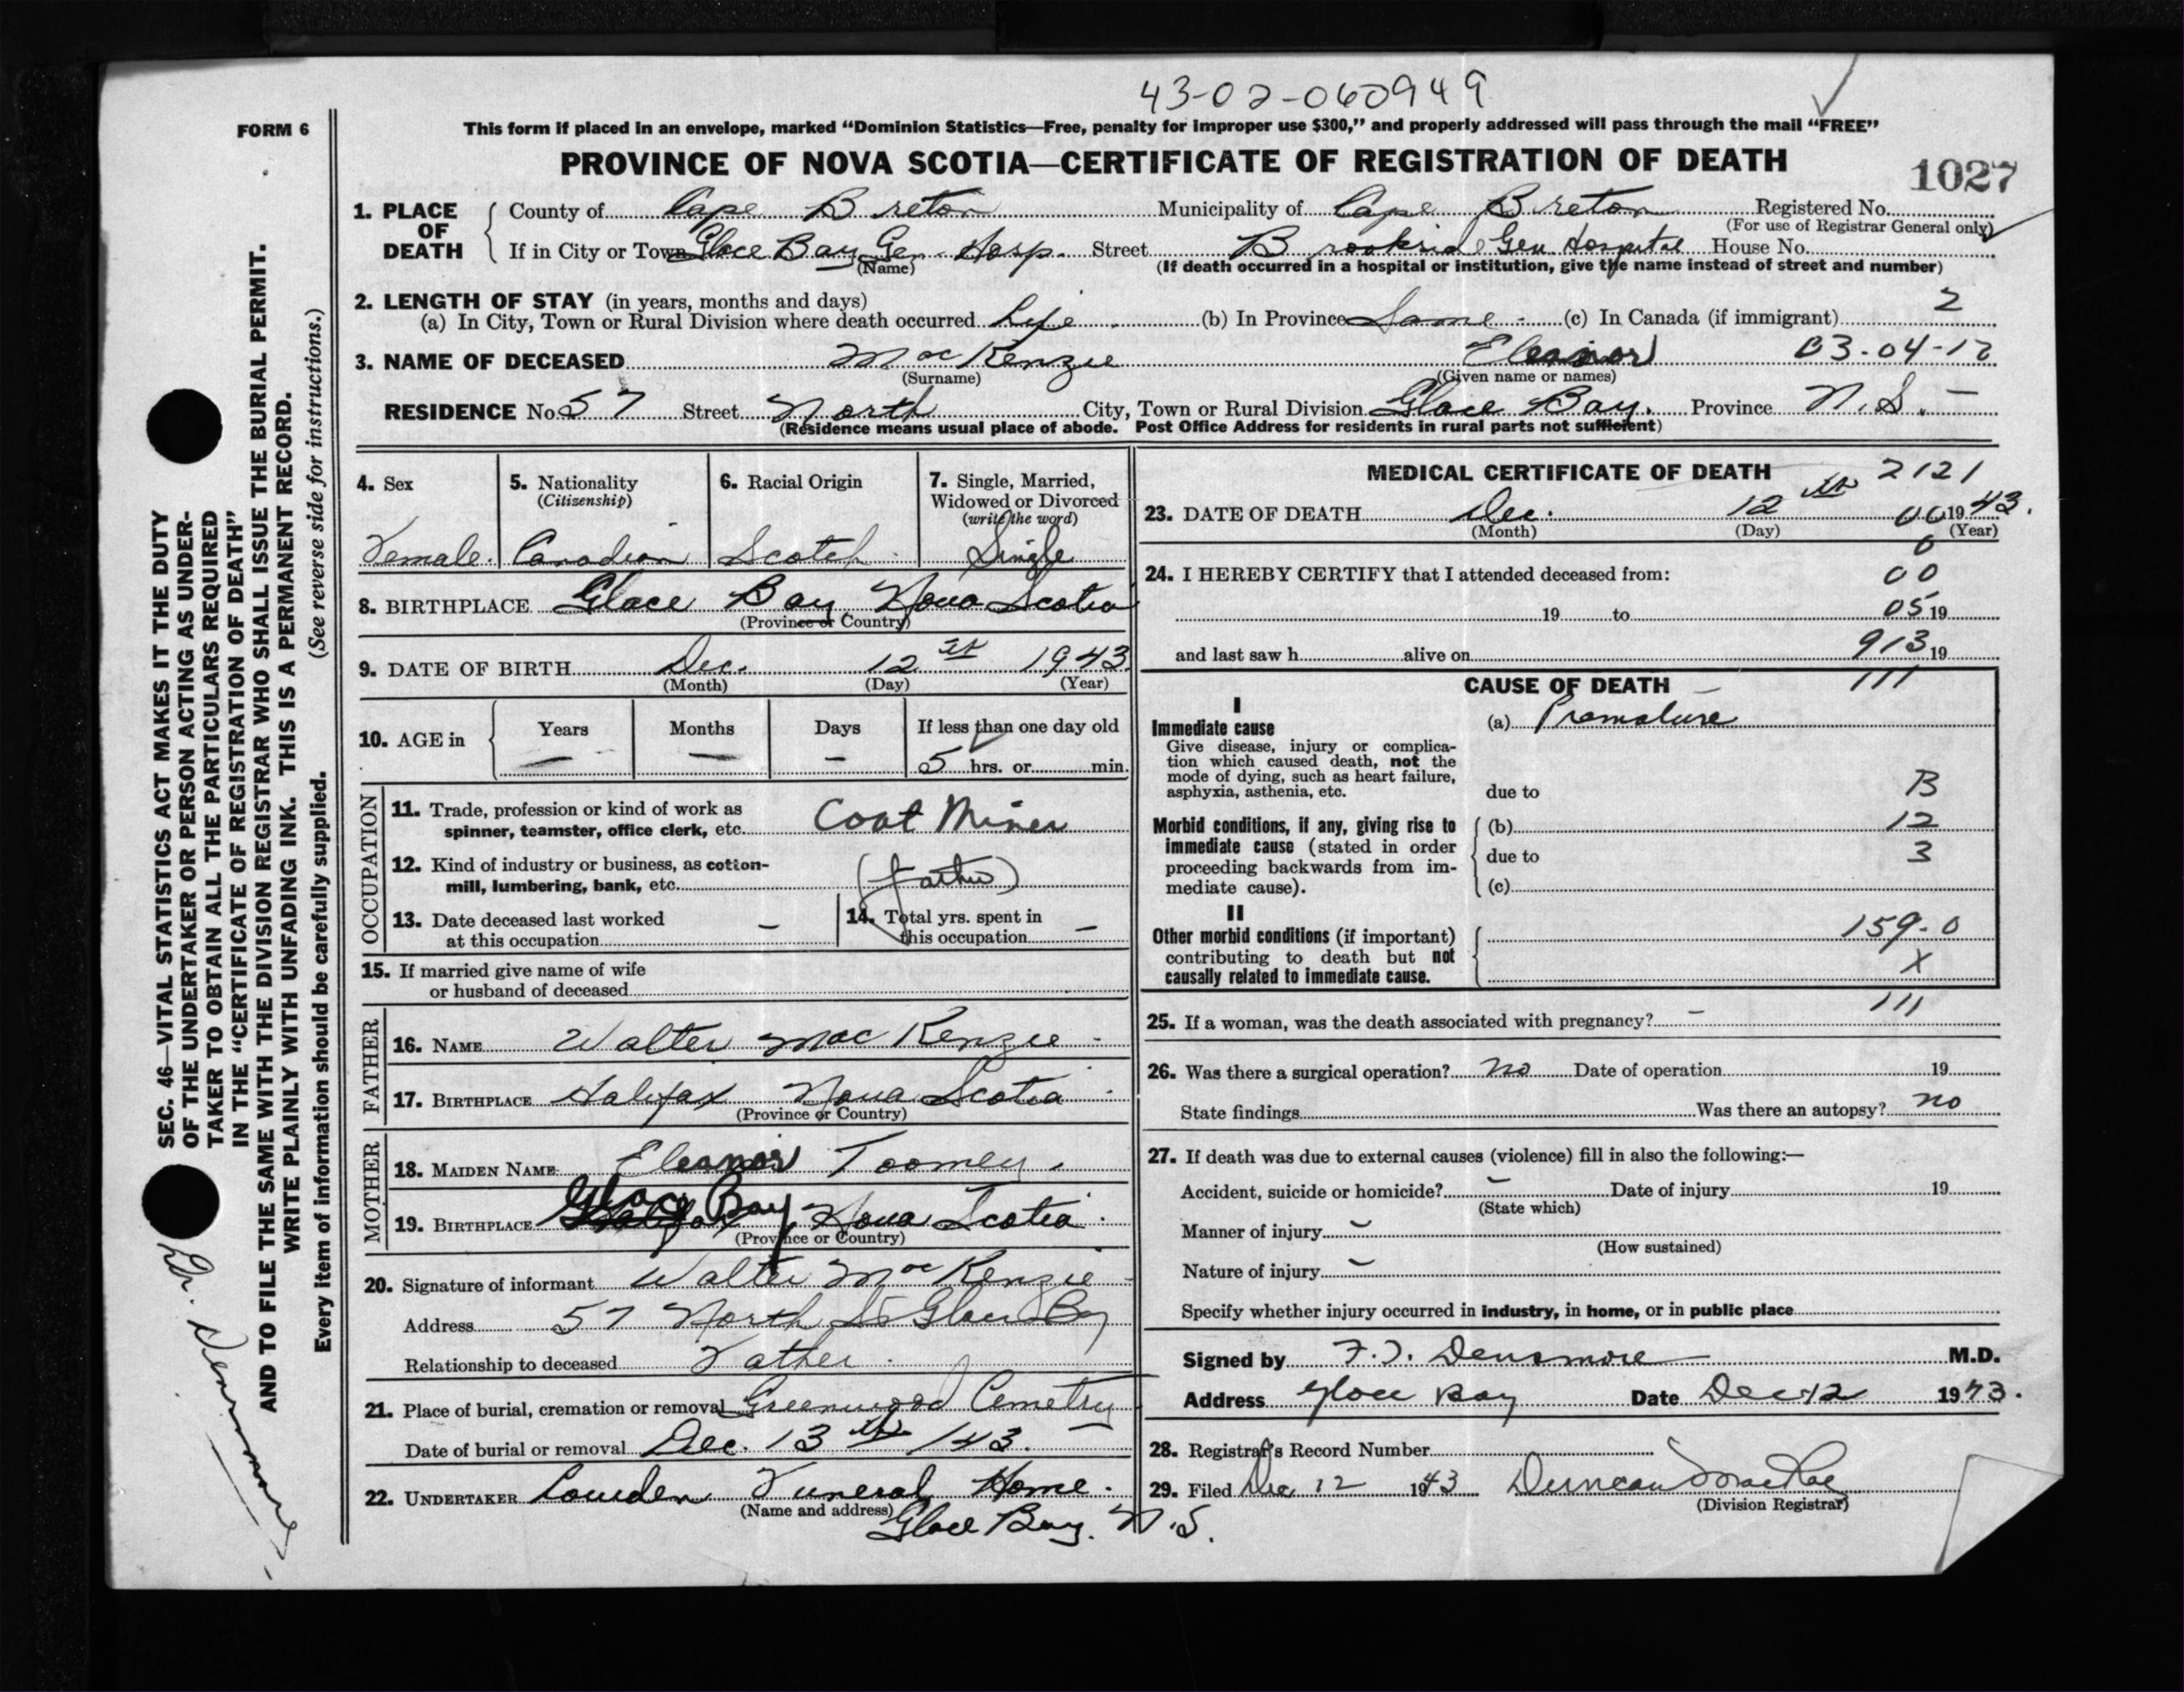 43-02-060949
FORM 6
This form if placed in an envelope, marked “Dominion Statistics—Free, penalty for improper use $300,” and properly addressed will pass through the mail “FREE”
PROVINCE OF NOVA SCOTIA—CERTIFICATE OF REGISTRATION OF DEATH
1027
1. PLACE OF DEATH
County of Cape Breton Municipality of Cape Breton Registered No.
(For use of Registrar General only)
If in City or Town Glace Bay Gen. Hosp. Street Gen Hospital House No.
(Name) (If death occurred in a hospital or institution, give the name instead of street and number)
2. LENGTH OF STAY (in years, months and days)
(a) In City, Town or Rural Division where death occurred Life (b) In Province Same - (c) In Canada (if immigrant) 2
3. NAME OF DECEASED Mac Kenzie Eleanor 03-04-12
(Surname) (Given name or names)
RESIDENCE No. 57 Street North City, Town or Rural Division Glace Bay. Province N.S. -
(Residence means usual place of abode. Post Office Address for residents in rural parts not sufficient)
4. Sex
Female.
5. Nationality
(Citizenship)
Canadian
6. Racial Origin
Scotch
7. Single, Married,
Widowed or Divorced
(write the word)
Single
8. BIRTHPLACE Glace Bay, Nova Scotia
(Province or Country)
9. DATE OF BIRTH Dec. 12 1943
(Month) (Day) (Year)
10. AGE in
Years Months Days If less than one day old
— — — 5 hrs. or min.
OCCUPATION
11. Trade, profession or kind of work as
spinner, teamster, office clerk, etc. Coal Miner
12. Kind of industry or business, as cotton-
mill, lumbering, bank, etc. (father)
13. Date deceased last worked
at this occupation —
14. Total yrs. spent in
this occupation —
15. If married give name of wife
or husband of deceased
FATHER
16. NAME Walter Mac Kenzie -
17. BIRTHPLACE Halifax Nova Scotia
(Province or Country)
MOTHER
18. MAIDEN NAME Eleanor Toomey.
19. BIRTHPLACE Glace Bay, Nova Scotia.
(Province or Country)
20. Signature of informant Walter MacKenzie
Address 57 North St Glace Bay
Relationship to deceased Father.
21. Place of burial, cremation or removal Greenwood Cemetry
Date of burial or removal Dec. 13th /43.
22. UNDERTAKER Funeral Home.
(Name and address)
Glace Bay. N.S.
MEDICAL CERTIFICATE OF DEATH 2121
23. DATE OF DEATH Dec. 12 th 1943.
(Month) (Day) (Year)
00
0
24. I HEREBY CERTIFY that I attended deceased from: 00
19 to 05 19
and last saw h alive on 913 19
CAUSE OF DEATH 111
I
Immediate cause
Give disease, injury or complica-
tion which caused death, not the
mode of dying, such as heart failure,
asphyxia, asthenia, etc.
(a) Premature
due to B
Morbid conditions, if any, giving rise to
immediate cause (stated in order
proceeding backwards from im-
mediate cause).
(b) 12
due to 3
(c)
II
Other morbid conditions (if important)
contributing to death but not
causally related to immediate cause.
159-0
X
25. If a woman, was the death associated with pregnancy? - 111
26. Was there a surgical operation? no Date of operation 19
State findings Was there an autopsy? no
27. If death was due to external causes (violence) fill in also the following:—
Accident, suicide or homicide? - Date of injury 19
(State which)
Manner of injury -
(How sustained)
Nature of injury -
Specify whether injury occurred in industry, in home, or in public place
Signed by Densmore M.D.
Address Glace Bay Date Dec 12 1943.
28. Registrar's Record Number
29. Filed Dec 12 1943 Duncan MacRae
(Division Registrar)
SEC. 46—VITAL STATISTICS ACT MAKES IT THE DUTY
OF THE UNDERTAKER OR PERSON ACTING AS UNDER-
TAKER TO OBTAIN ALL THE PARTICULARS REQUIRED
IN THE “CERTIFICATE OF REGISTRATION OF DEATH”
AND TO FILE THE SAME WITH THE DIVISION REGISTRAR WHO SHALL ISSUE THE BURIAL PERMIT.
WRITE PLAINLY WITH UNFADING INK. THIS IS A PERMANENT RECORD.
Every item of information should be carefully supplied. (See reverse side for instructions.)
Dr. Densmore